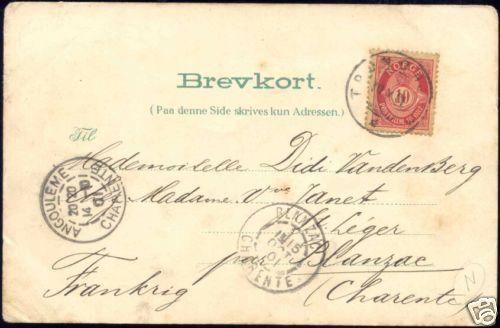 NORGE
10
Brevkort.
(Paa denne Side skrives kun Adressen.)
Til
Mademoiselle Didi VandenBerg
Madame Vve Janet
St. Léger
par Blanzac
Frankrig (Charente)
ANGOULEME
CHARENTE
BLANZAC
CHARENTE
N
ebY